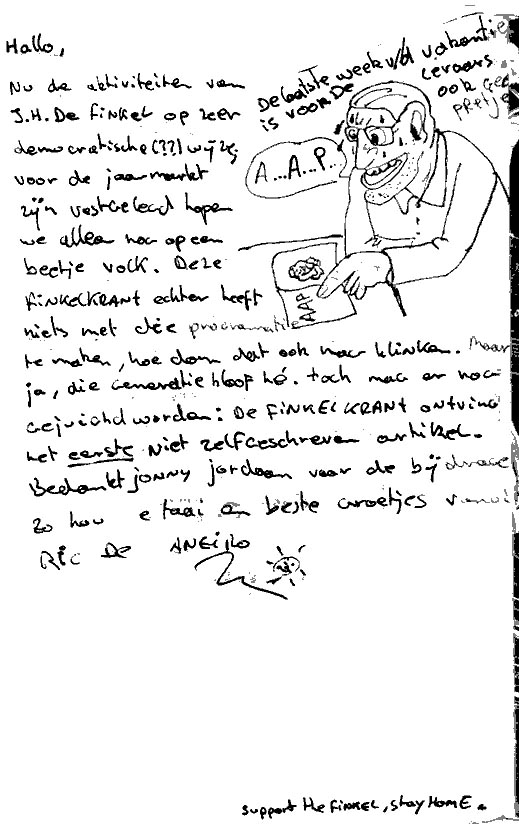 Hallo,
De laatste week v/d vakantie
is voor De Leraars
ook geen
pretje
A...A...P...
AAP
Nu de aktiviteiten van
J.H. De Finkel op zeer
democratische(??) wijze
voor de jaarmarkt
zijn vastgelegd hopen
we allen nog op een
beetje volk. Deze
FiNKELKRANT echter heeft
niets met die programmatie
te maken, hoe dom dat ook mag klinken. Maar
ja, die generatiekloof hé. Toch mag er nog
gejuichd worden: De FiNKELKRANT ontving
het eerste Niet zelfgeschreven artikel.
Bedankt jonny jordaan voor de bijdrage
zo hou e taai en beste groetjes vanwi
Ric De ANEiRO
support the FiNKEL, stay HOME.